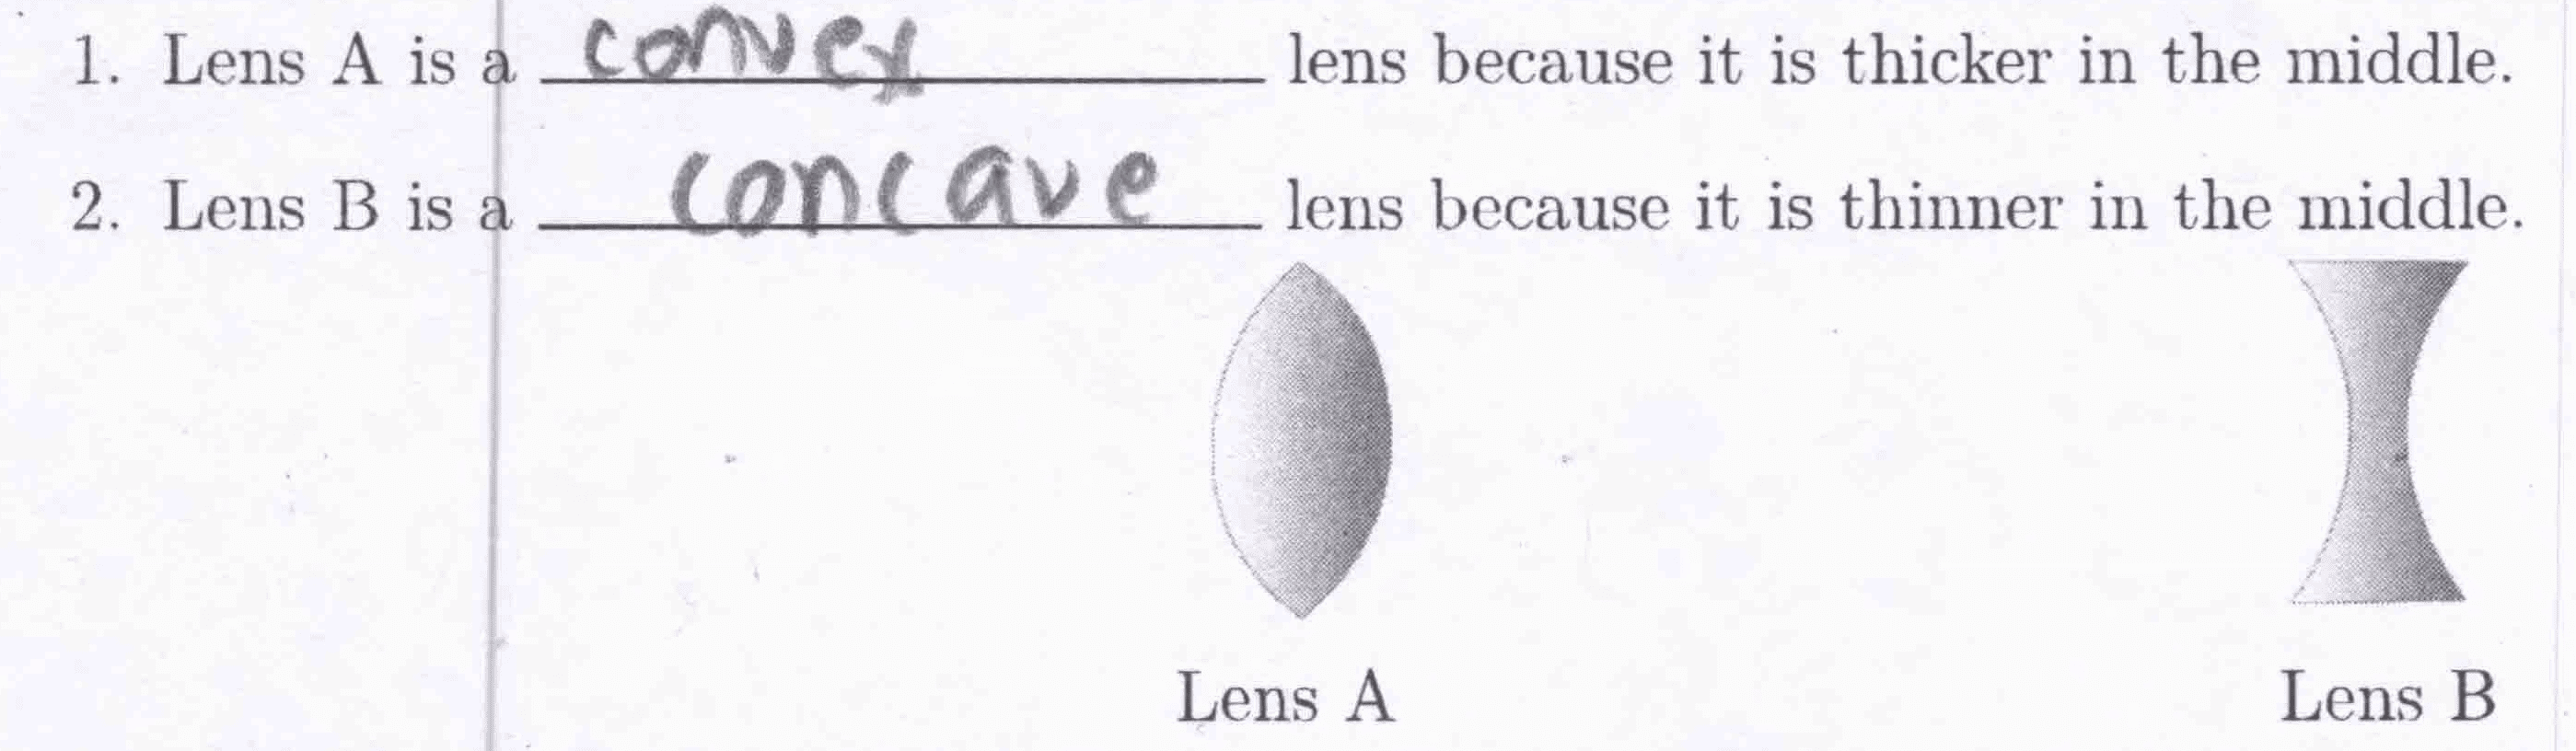 1. Lens A is a convex lens because it is thicker in the middle.
2. Lens B is a concave lens because it is thinner in the middle.
Lens A Lens B